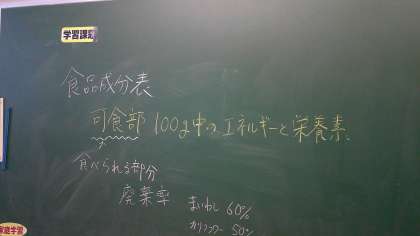 学習課題
食品成分表
可食部 100g中の エネルギーと栄養素
食べられる部分
廃棄率 まいわし 60%
カリフラワー 50%
家庭学習